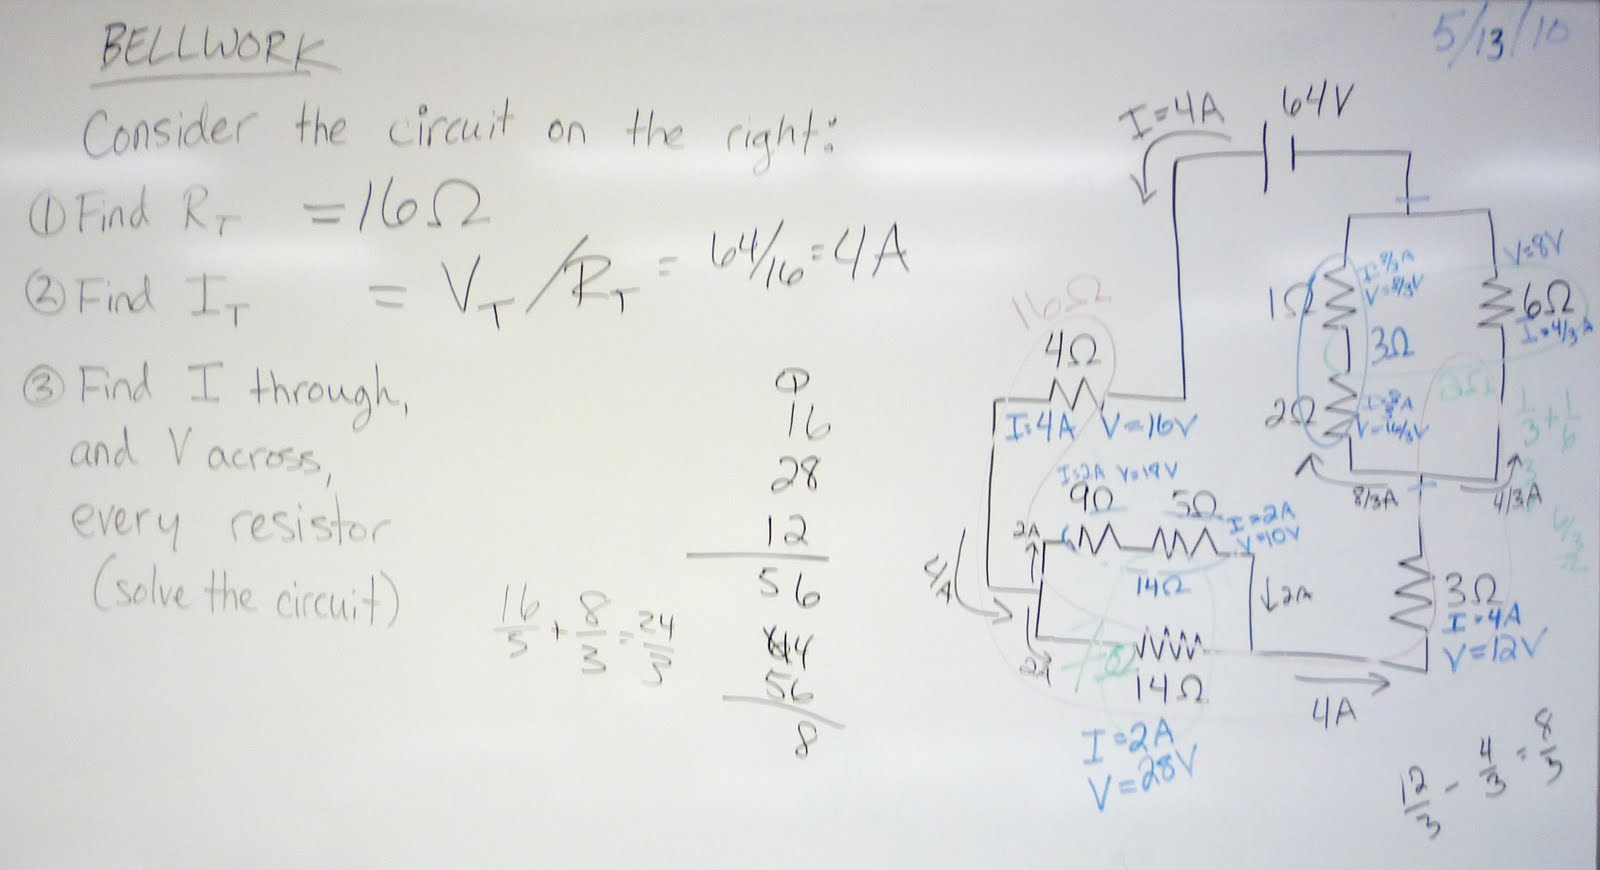 BELLWORK
5/13/10
Consider the circuit on the right:
① Find R_T = 16Ω
② Find I_T = V_T / R_T = 64/16 = 4A
③ Find I through,
and V across,
every resistor
(solve the circuit)
16/5 + 8/3 = 24/3
16
28
12
56
64
56
8
I=4A
64V
16Ω
4Ω
I=4A V=16V
1Ω
I=8/3A
V=8/3V
3Ω
2Ω
I=8/3A
V=16/3V
V=8V
6Ω
I=4/3A
1/3 + 1/6
8/3A
4/3A
I=2A V=18V
9Ω
5Ω
I=2A
V=10V
2A
4A
14Ω
↓2A
2A
7Ω
14Ω
I=2A
V=28V
3Ω
I=4A
V=12V
4A
12/3 - 4/3 = 8/3